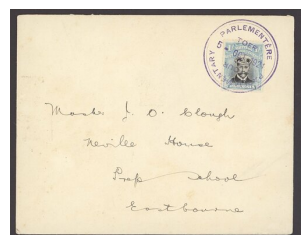 PARLEMENTÊRE
Master J. O. Clough
Neville House
Prep School
Eastbourne